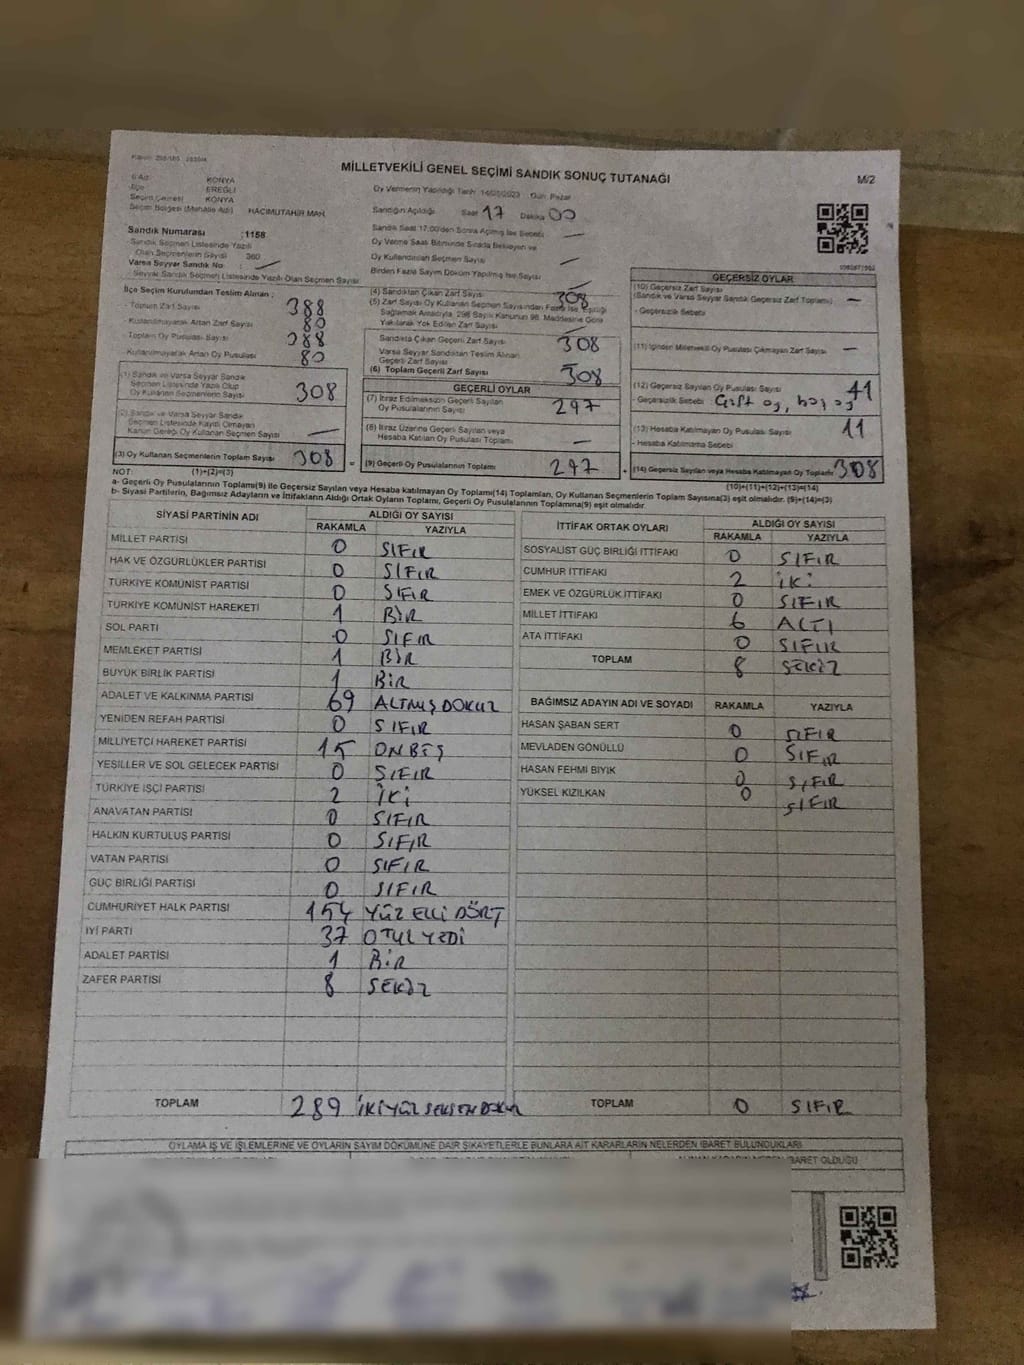 MİLLETVEKİLİ GENEL SEÇİMİ SANDIK SONUÇ TUTANAĞI
M/2
İli Adı KONYA
İlçe EREĞLİ
Seçim Çevresi KONYA
Seçim Bölgesi (Mahalle Adı) HACIMUTAHİR MAH.
Oy Vermenin Yapıldığı Tarih 14/05/2023 Gün Pazar
Sandığın Açıldığı Saat 17 Dakika 00
Sandık Saat 17:00'den Sonra Açılmış İse Sebebi
Oy Verme Saati Bitiminde Sırada Bekleyen ve
Oy Kullandırılan Seçmen Sayısı
Birden Fazla Sayım Döküm Yapılmış İse Sayısı
Sandık Numarası :1158
Sandık Seçmen Listesinde Yazılı
Olan Seçmenlerin Sayısı 360
Varsa Seyyar Sandık No :
Seyyar Sandık Listesinde Yazılı Olan Seçmen Sayısı
İlçe Seçim Kurulundan Teslim Alınan ;
- Toplam Zarf Sayısı 388
- Kullanılmayarak Artan Zarf Sayısı 80
Toplam Oy Pusulası Sayısı 388
- Kullanılmayarak Artan Oy Pusulası 80
(1) Sandık ve Varsa Seyyar Sandık
Seçmen Listesinde Yazılı Olup
Oy Kullanan Seçmenlerin Sayısı 308
(2) Sandık ve Varsa Seyyar Sandık
Seçmen Listesinde Kayıtlı Olmayan
Kanun Gereği Oy Kullanan Seçmen Sayısı
(3) Oy Kullanan Seçmenlerin Toplam Sayısı 308
(4) Sandıktan Çıkan Zarf Sayısı 308
(5) Zarf Sayısı Oy Kullanan Seçmen Sayısından Fazla İse, Eşitliği
Sağlamak Amacıyla, 298 Sayılı Kanunun 98. Maddesine Göre
Yakılarak Yok Edilen Zarf Sayısı
Sandıkta Çıkan Geçerli Zarf Sayısı 308
Varsa Seyyar Sandıktan Teslim Alınan
Geçerli Zarf Sayısı
(6) Toplam Geçerli Zarf Sayısı 308
GEÇERLİ OYLAR
(7) İtiraz Edilmeksizin Geçerli Sayılan
Oy Pusulalarının Sayısı 297
(8) İtiraz Üzerine Geçerli Sayılan veya
Hesaba Katılan Oy Pusulası Toplamı
= (9) Geçerli Oy Pusulalarının Toplamı 297 +
GEÇERSİZ OYLAR
(10) Geçersiz Zarf Sayısı
(Sandık ve Varsa Seyyar Sandık Geçersiz Zarf Toplamı)
- Geçersizlik Sebebi
(11) İçinden Milletvekili Oy Pusulası Çıkmayan Zarf Sayısı
(12) Geçersiz Sayılan Oy Pusulası Sayısı 11
- Geçersizlik Sebebi Çift oy, boş oy
(13) Hesaba Katılmayan Oy Pusulası Sayısı 11
- Hesaba Katılmama Sebebi
(14) Geçersiz Sayılan veya Hesaba Katılmayan Oy Toplamı 308
NOT: (1)+(2)=(3) (10)+(11)+(12)+(13)=(14)
a- Geçerli Oy Pusulalarının Toplamı(9) ile Geçersiz Sayılan veya Hesaba katılmayan Oy Toplamı(14) Toplamları, Oy Kullanan Seçmenlerin Toplam Sayısına(3) eşit olmalıdır. (9)+(14)=(3)
b- Siyasi Partilerin, Bağımsız Adayların ve İttifakların Aldığı Ortak Oyların Toplamı, Geçerli Oy Pusulalarının Toplamına(9) eşit olmalıdır
SİYASİ PARTİNİN ADI ALDIĞI OY SAYISI
RAKAMLA YAZIYLA
MİLLET PARTİSİ 0 SIFIR
HAK VE ÖZGÜRLÜKLER PARTİSİ 0 SIFIR
TÜRKİYE KOMÜNİST PARTİSİ 0 SIFIR
TÜRKİYE KOMÜNİST HAREKETİ 1 BİR
SOL PARTİ 0 SIFIR
MEMLEKET PARTİSİ 1 BİR
BÜYÜK BİRLİK PARTİSİ 1 BİR
ADALET VE KALKINMA PARTİSİ 69 ALTMIŞ DOKUZ
YENİDEN REFAH PARTİSİ 0 SIFIR
MİLLİYETÇİ HAREKET PARTİSİ 15 ONBEŞ
YEŞİLLER VE SOL GELECEK PARTİSİ 0 SIFIR
TÜRKİYE İŞÇİ PARTİSİ 2 İKİ
ANAVATAN PARTİSİ 0 SIFIR
HALKIN KURTULUŞ PARTİSİ 0 SIFIR
VATAN PARTİSİ 0 SIFIR
GÜÇ BİRLİĞİ PARTİSİ 0 SIFIR
CUMHURİYET HALK PARTİSİ 154 YÜZ ELLİ DÖRT
İYİ PARTİ 37 OTUZ YEDİ
ADALET PARTİSİ 1 BİR
ZAFER PARTİSİ 8 SEKİZ
TOPLAM 289 İKİ YÜZ SEKSEN DOKUZ
İTTİFAK ORTAK OYLARI ALDIĞI OY SAYISI
RAKAMLA YAZIYLA
SOSYALİST GÜÇ BİRLİĞİ İTTİFAKI 0 SIFIR
CUMHUR İTTİFAKI 2 İKİ
EMEK VE ÖZGÜRLÜK İTTİFAKI 0 SIFIR
MİLLET İTTİFAKI 6 ALTI
ATA İTTİFAKI 0 SIFIR
TOPLAM 8 SEKİZ
BAĞIMSIZ ADAYIN ADI VE SOYADI RAKAMLA YAZIYLA
HASAN ŞABAN SERT 0 SIFIR
MEVLADEN GÖNÜLLÜ 0 SIFIR
HASAN FEHMİ BIYIK 0 SIFIR
YÜKSEL KIZILKAN 0 SIFIR
TOPLAM 0 SIFIR
OYLAMA İŞ VE İŞLEMLERİNE VE OYLARIN SAYIM DÖKÜMÜNE DAİR ŞİKAYETLERLE BUNLARA AİT KARARLARIN NELERDEN İBARET BULUNDUKLARI